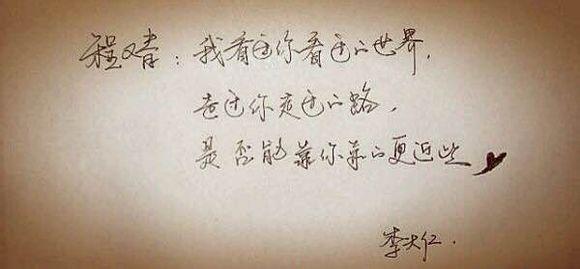 程又青：我看过你看过的世界,
走过你走过的路,
是否能靠你靠的更近些
李大仁.